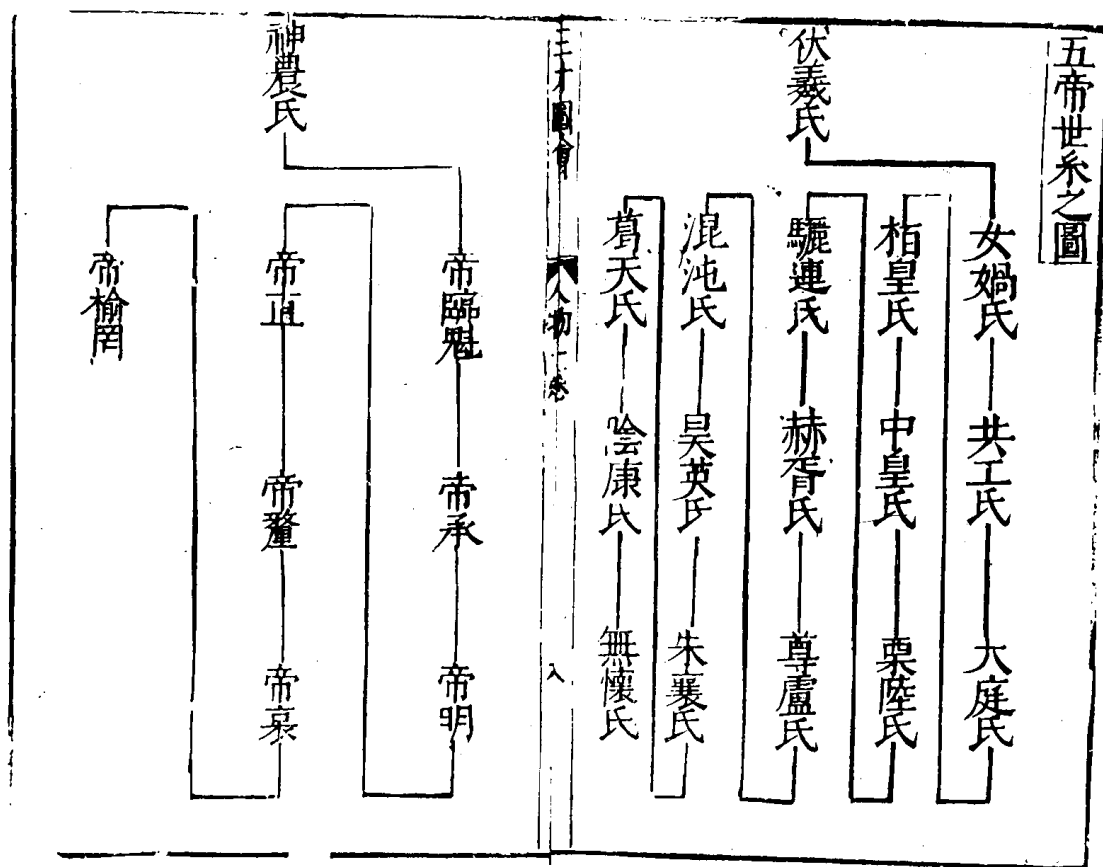 五帝世系之圖
伏羲氏
女媧氏
共工氏
大庭氏
栢皇氏
中皇氏
栗陸氏
驪連氏
赫胥氏
尊盧氏
混沌氏
昊英氏
朱襄氏
葛天氏
陰康氏
無懷氏
三才圖會
人物一卷
神農氏
帝臨魁
帝承
帝明
帝直
帝釐
帝哀
帝榆罔